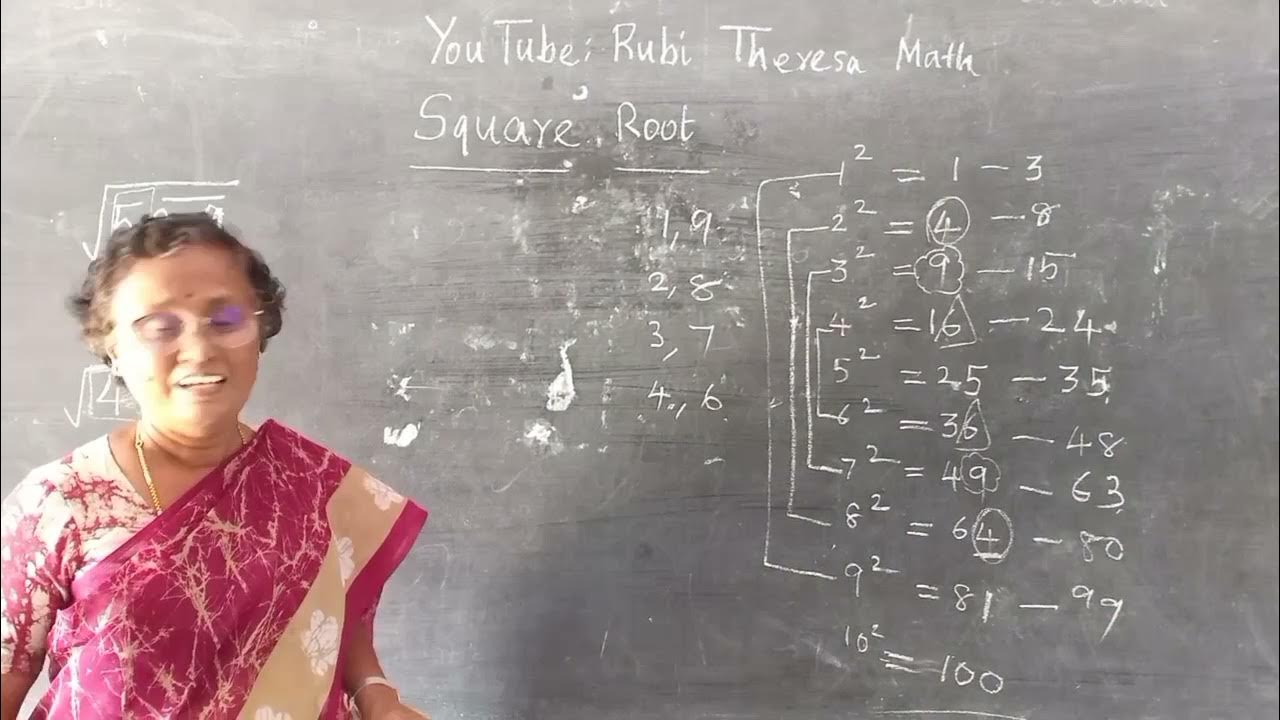 YouTube: Rubi Theresa Math
Square Root
1, 9
2, 8
3, 7
4, 6
1² = 1 – 3
2² = 4 – 8
3² = 9 – 15
4² = 16 – 24
5² = 25 – 35
6² = 36 – 48
7² = 49 – 63
8² = 64 – 80
9² = 81 – 99
10² = 100